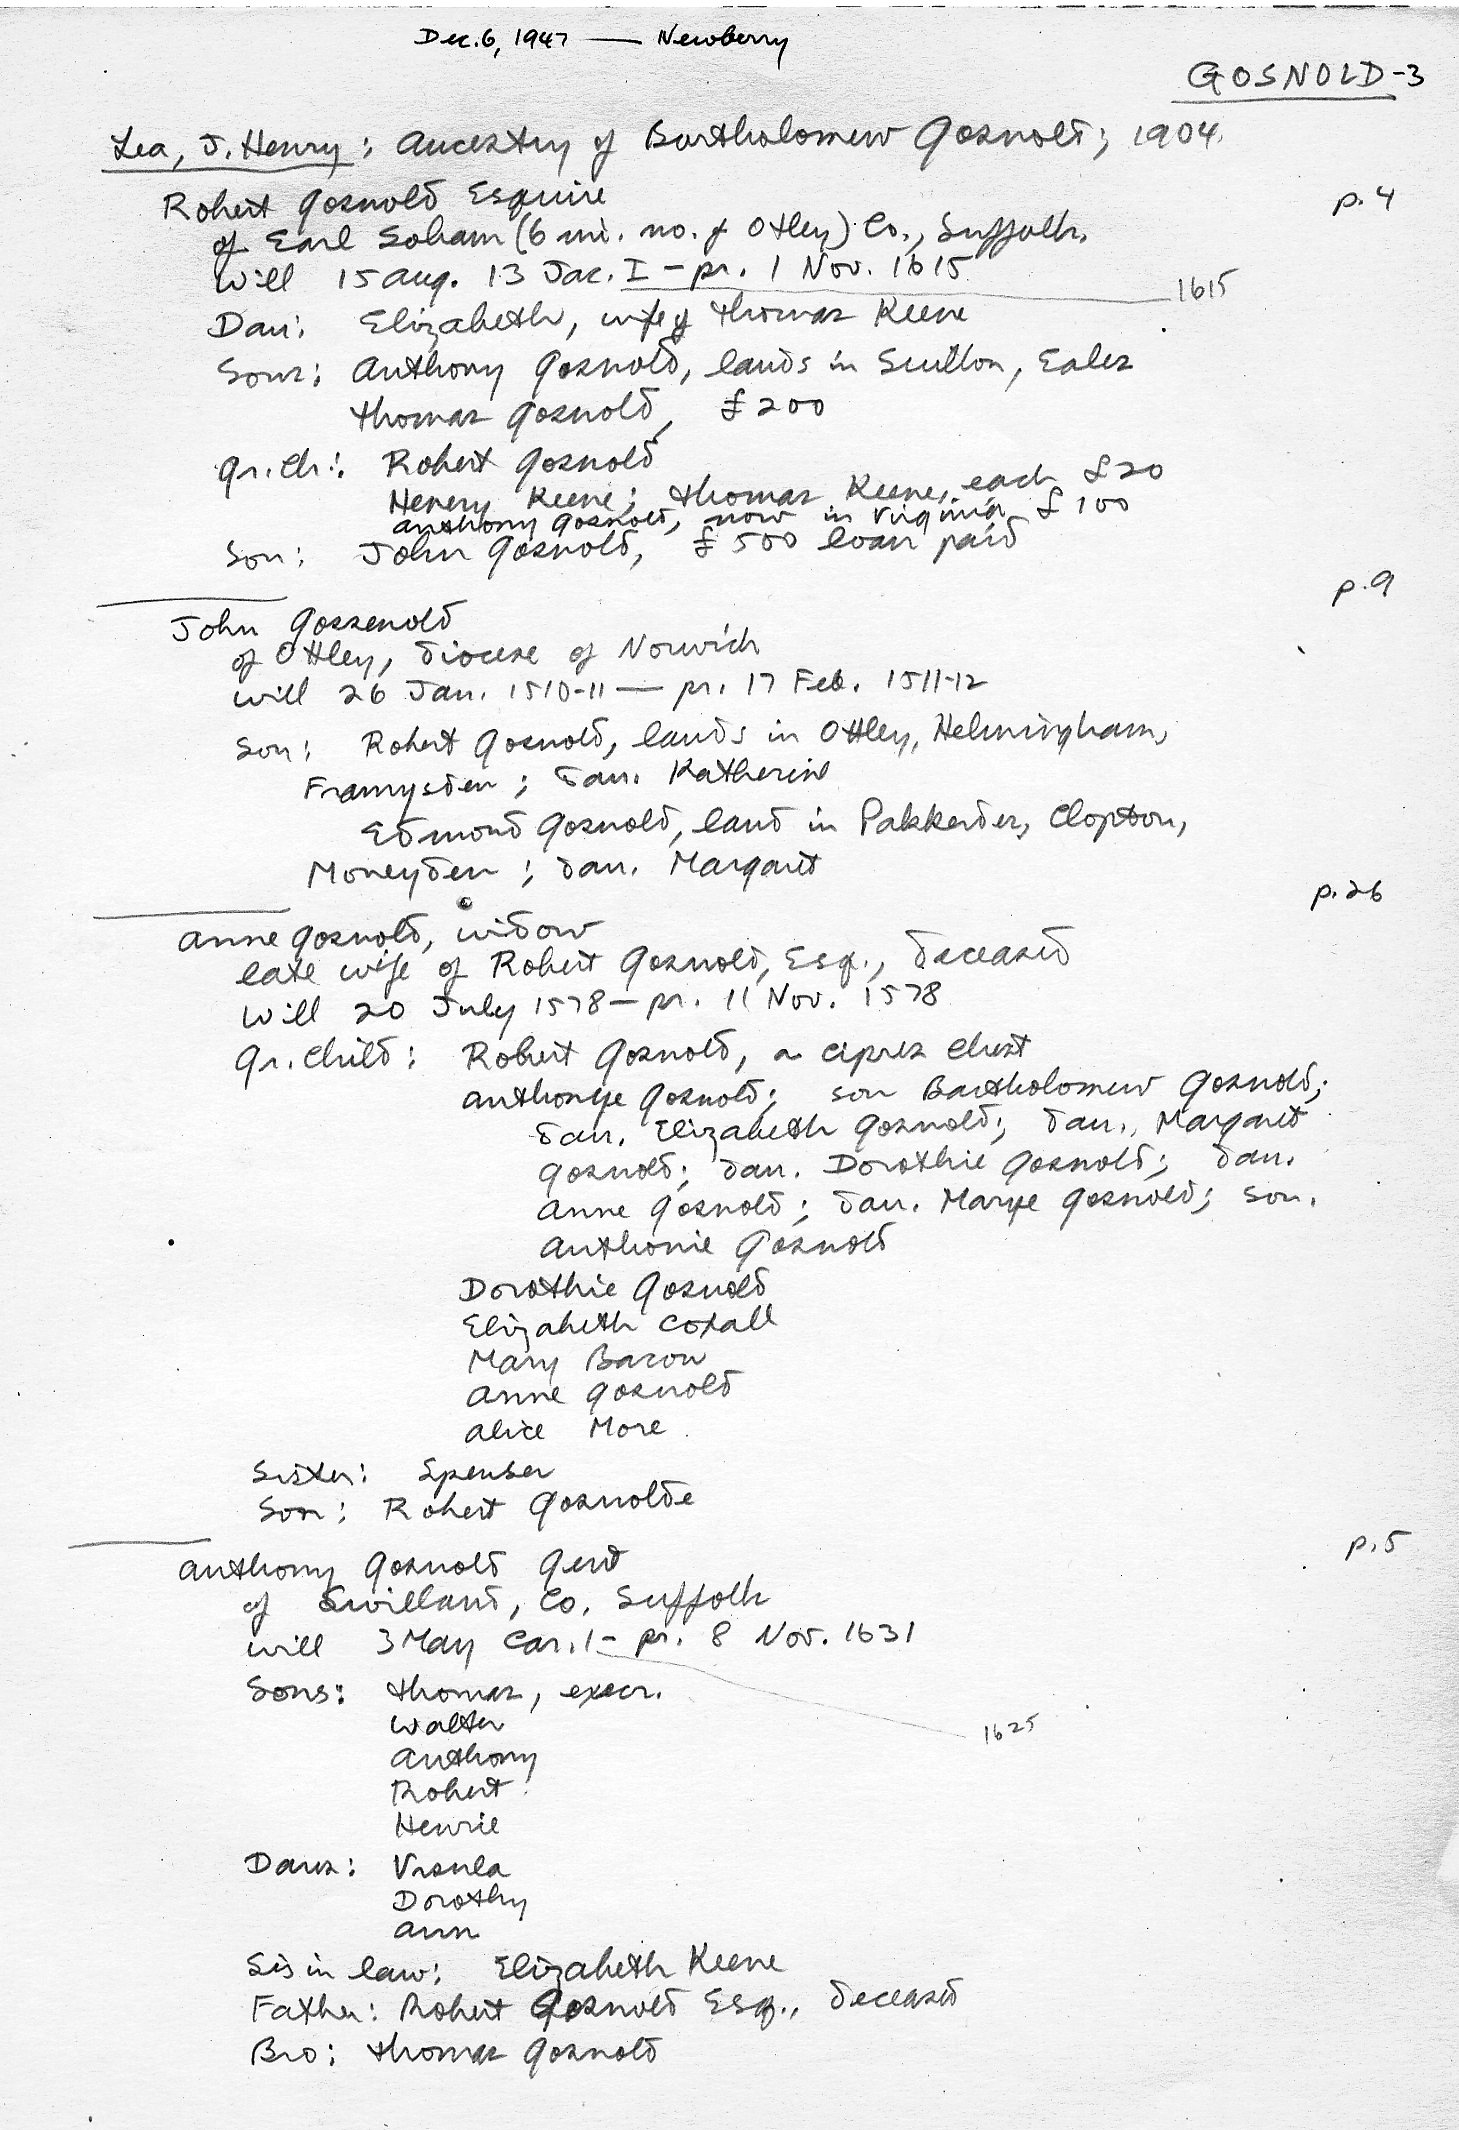 Dec. 6, 1947 — Newberry
GOSNOLD-3
Lea, J. Henry: Ancestry of Bartholomew Gosnold; 1904.
Robert Gosnold Esquire
p. 4
of Earl Soham (6 mi. no. of Otley) Co., Suffolk.
Will 15 Aug. 13 Jac. I — pr. 1 Nov. 1615
1615
Dau: Elizabeth, wife of Thomas Keene
Sons: Anthony Gosnold, lands in Scutton, Ealex
Thomas Gosnold, £200
Gr. Ch.: Robert Gosnold
Henery Keene; Thomas Keene, each £20
Anthony Gosnold, now in Virginia £100
Son: John Gosnold, £500 loan paid
p. 9
John Gossenold
of Ottley, diocese of Norwich
Will 26 Jan. 1510-11 — pr. 17 Feb. 1511-12
Son: Robert Gosnold, lands in Ottley, Helmingham,
Framysden; dau. Katherine
Edmond Gosnold, land in Pakkerdes, Clopton,
Moneyden; dau. Margaret
p. 26
Anne Gosnold, widow
late wife of Robert Gosnold, Esq., deceased
Will 20 July 1578 — pr. 11 Nov. 1578
Gr. Child: Robert Gosnold, a cipres chest
Anthonye Gosnold; son Bartholomew Gosnold;
dau. Elizabeth Gosnold; dau., Margaret
Gosnold; dau. Dorothie Gosnold; dau.
Anne Gosnold; dau. Marye Gosnold; son.
Anthonie Gosnold
Dorothie Gosnold
Elizabeth Coxall
Mary Bacon
Anne Gosnold
Alice More
Sister: Spenser
Son: Robert Gosnolde
p. 5
Anthony Gosnold Gent
of Swilland, Co. Suffolk
Will 3 May Car. 1 — pr. 8 Nov. 1631
Sons: Thomas, execr.
1625
Walter
Anthony
Robert
Henrie
Daus: Vrsula
Dorothy
Ann
Sis in law: Elizabeth Keene
Father: Robert Gosnold Esq., deceased
Bro: Thomas Gosnold